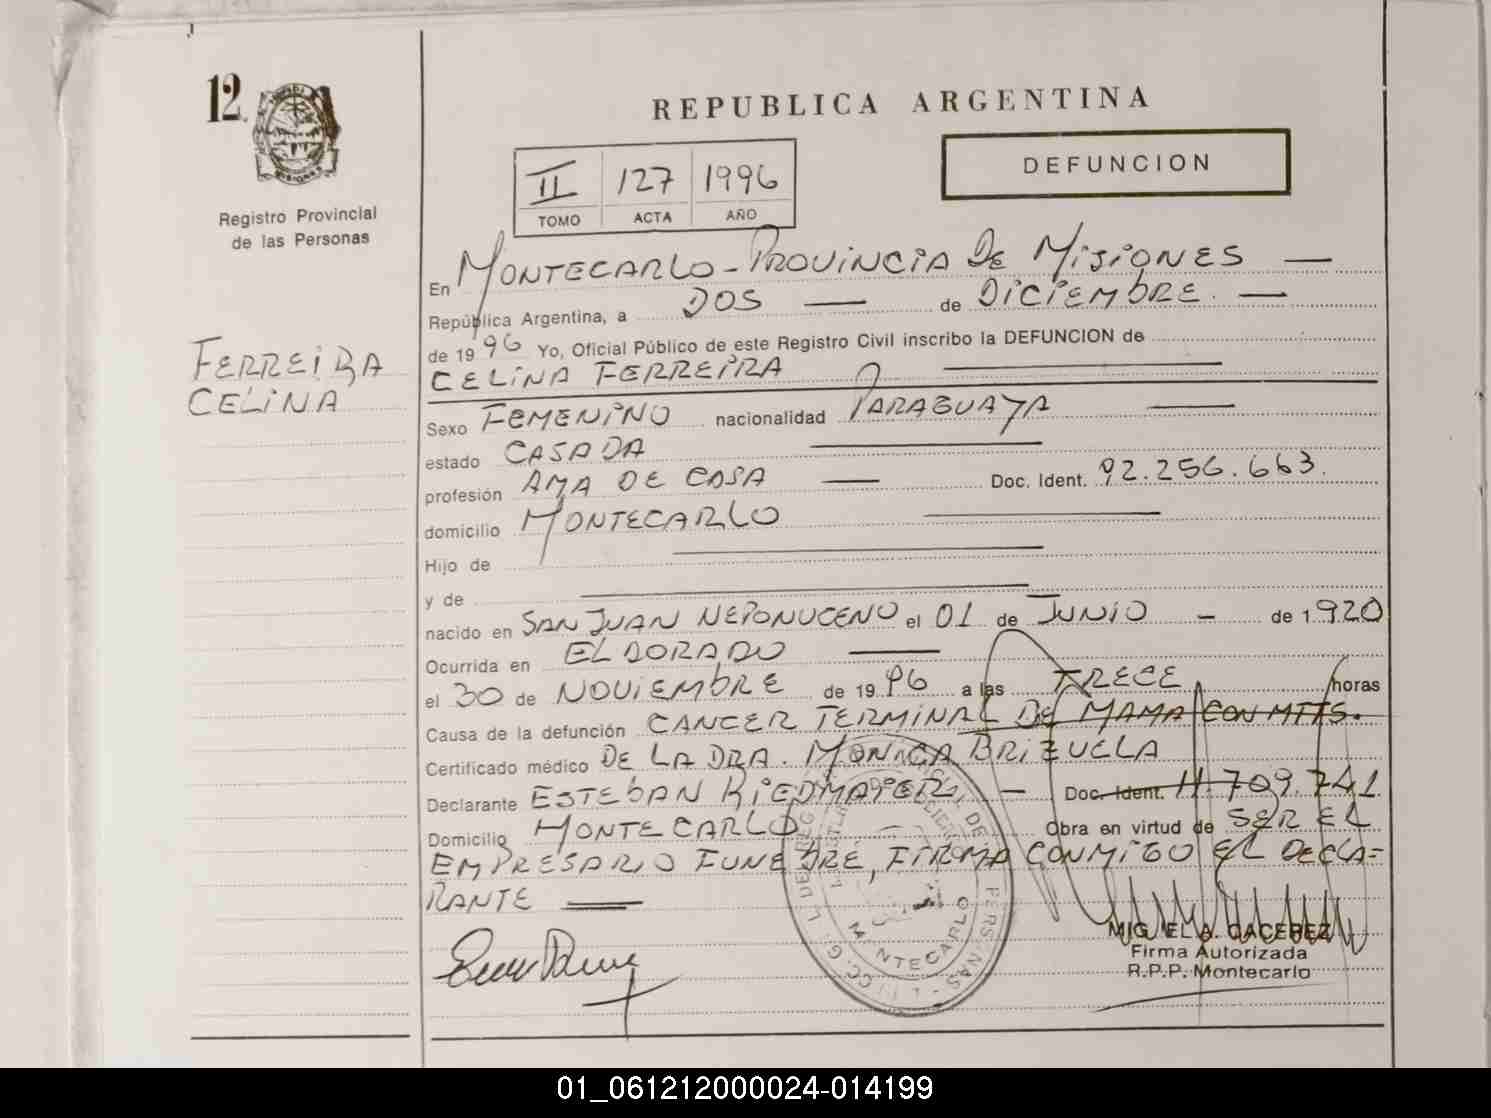 12
Registro Provincial
de las Personas
FERREIRA
CELINA
REPUBLICA ARGENTINA
II 127 1996
TOMO ACTA AÑO
DEFUNCION
En MONTECARLO - PROVINCIA DE MISIONES —
República Argentina, a DOS — de DICIEMBRE. —
de 1996 Yo, Oficial Público de este Registro Civil inscribo la DEFUNCION de
CELINA FERREIRA
Sexo FEMENINO nacionalidad PARAGUAYA —
estado CASADA
profesión AMA DE CASA — Doc. Ident. 92.256.663.
domicilio MONTECARLO
Hijo de
y de
nacido en SAN JUAN NEPONUCENO el 01 de JUNIO - de 1.920
Ocurrida en ELDORADO —
el 30 de NOVIEMBRE de 1996 a las TRECE horas
Causa de la defunción CANCER TERMINAL DE MAMA CON MTTS.
Certificado médico DE LA DRA. MONICA BRIZUELA
Declarante ESTEBAN RIEDMAIER — Doc. Ident. 11.709.741.
Domicilio MONTECARLO Obra en virtud de SER EL
EMPRESARIO FUNEBRE, FIRMA CONMIGO EL DECLA=
RANTE —
MONTECARLO
MIGUEL A. CACEREZ
Firma Autorizada
R.P.P. Montecarlo
01_061212000024-014199